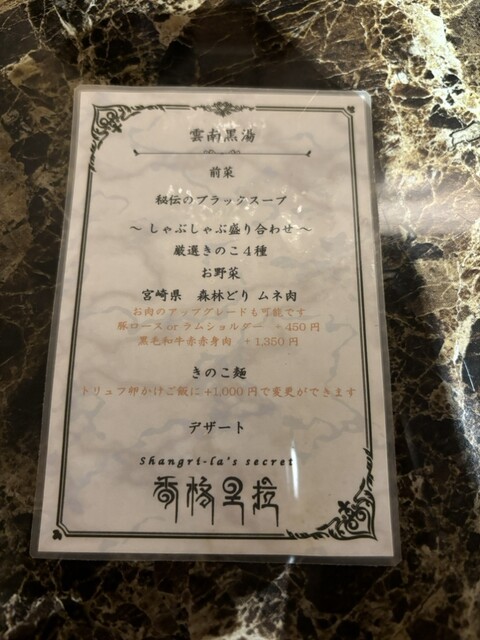 雲南黒湯
前菜
秘伝のブラックスープ
～しゃぶしゃぶ盛り合わせ～
厳選きのこ４種
お野菜
宮崎県　森林どり ムネ肉
お肉のアップグレードも可能です
豚ロース or ラムショルダー　+ 450 円
黒毛和牛赤赤身肉　+ 1,350 円
きのこ麺
トリュフ卵かけご飯に +1,000 円で変更ができます
デザート
Shangri-la's secret
香格里拉